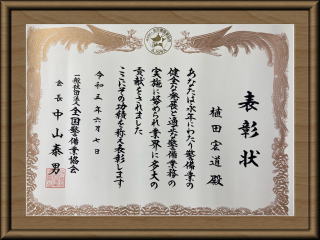 表彰状
植田宏道殿
あなたは永年にわたり警備業の
健全な発展と適正な警備業務の
実施に努められ業界に多大の
貢献をされました
ここにその功績を称え表彰します
令和三年六月七日
一般社団法人全国警備業協会
会長中山泰男